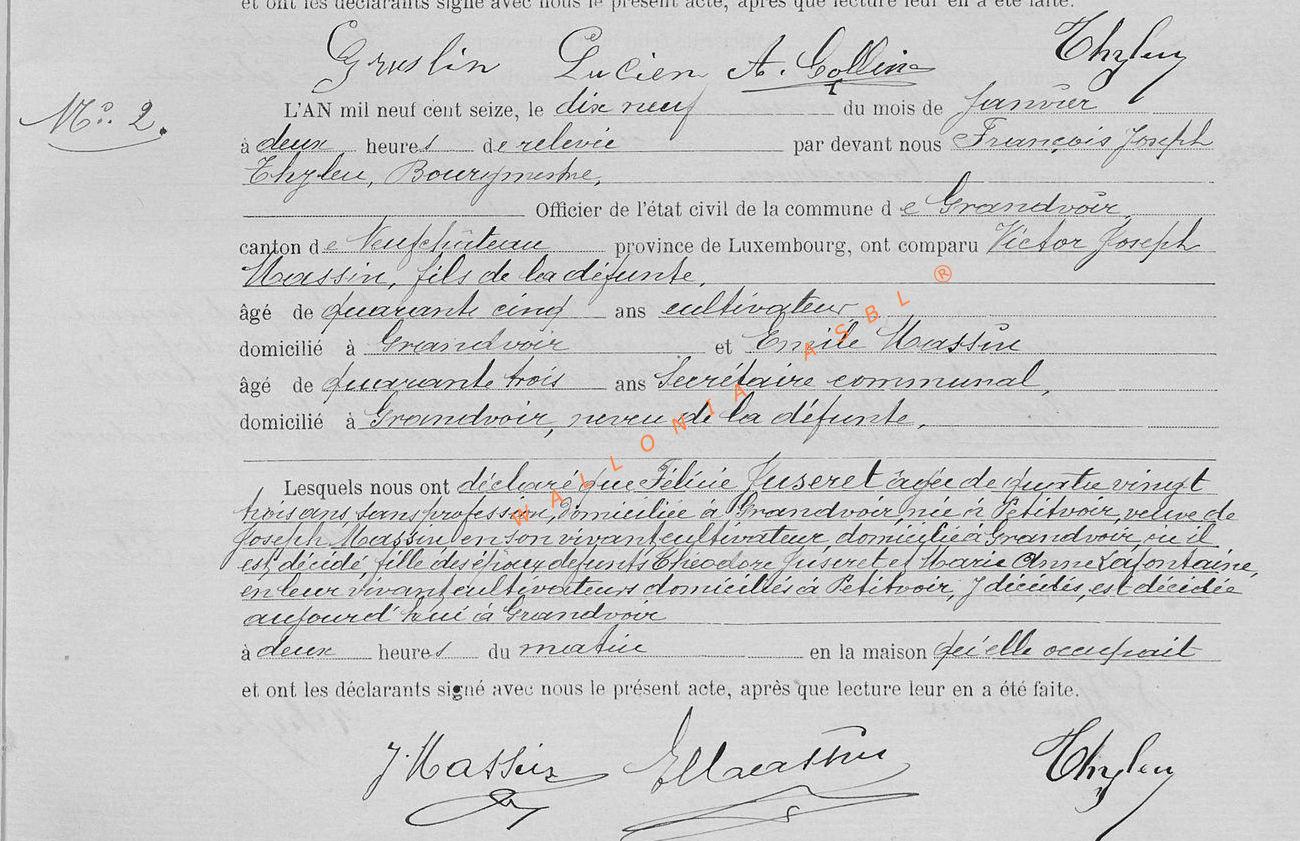 et ont les déclarants signé avec nous le présent acte, après que lecture leur en a été faite.
Gruslin Lucien A. Collin Thyleu
No. 2.
L'AN mil neuf cent seize, le dix neuf du mois de Janvier
à deux heures de relevée par devant nous François Joseph
Thyleu, Bourgmestre,
Officier de l'état civil de la commune de Grandvoir,
canton de Neufchâteau province de Luxembourg, ont comparu Victor Joseph
Massin, fils de la défunte,
âgé de quarante cinq ans cultivateur
domicilié à Grandvoir et Emile Massin
âgé de quarante trois ans Secrétaire communal,
domicilié à Grandvoir, neveu de la défunte,
Lesquels nous ont déclaré que Félicie Juseret âgée de quatre vingt
trois ans, sans profession, domiciliée à Grandvoir, née à Petitvoir, veuve de
Joseph Massin en son vivant cultivateur, domicilié à Grandvoir, où il
est décédé, fille des époux défunts Théodore Juseret et Marie Anne Lafontaine,
en leur vivant cultivateurs domiciliés à Petitvoir, y décédés, est décédée
aujourd'hui à Grandvoir
à deux heures du matin en la maison qu'elle occupait
et ont les déclarants signé avec nous le présent acte, après que lecture leur en a été faite.
J Massin E Massin Thyleu
WALLONIA ASBL ®